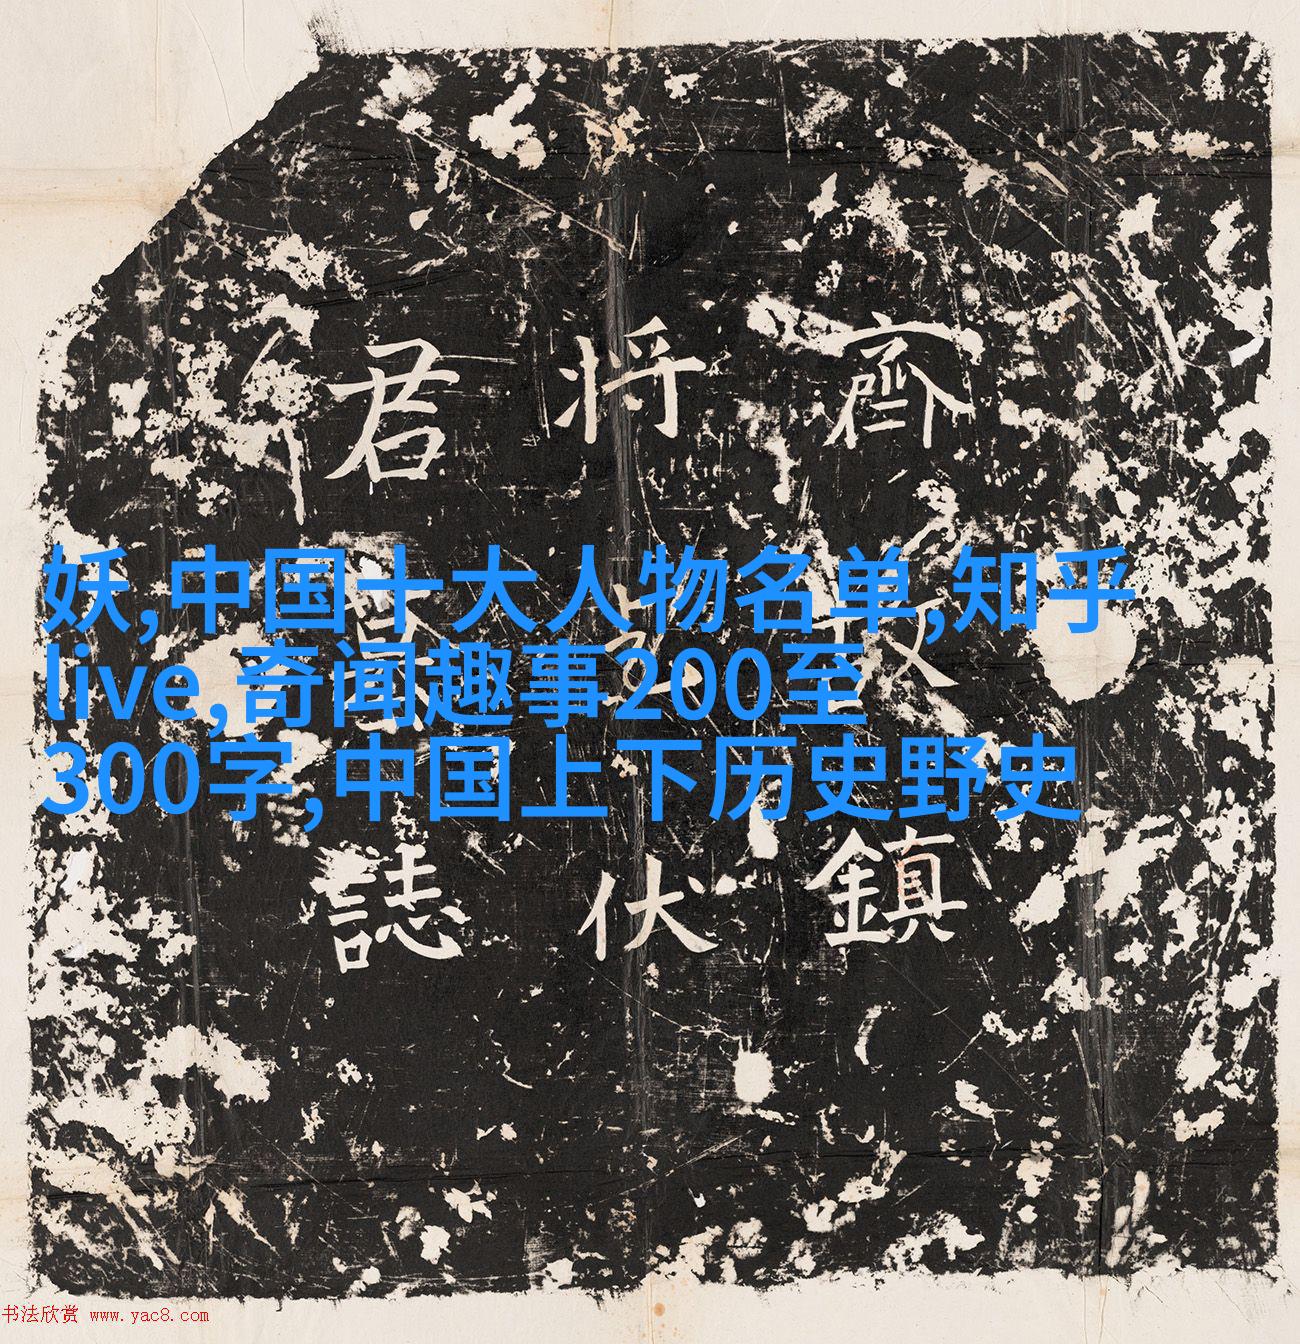 齊故鎮
将乞伏
君墓誌
妖,中国十大人物名单,知乎
live,奇闻趣事200至
300字,中国上下历史野史
书法欣赏 www.yac8.com